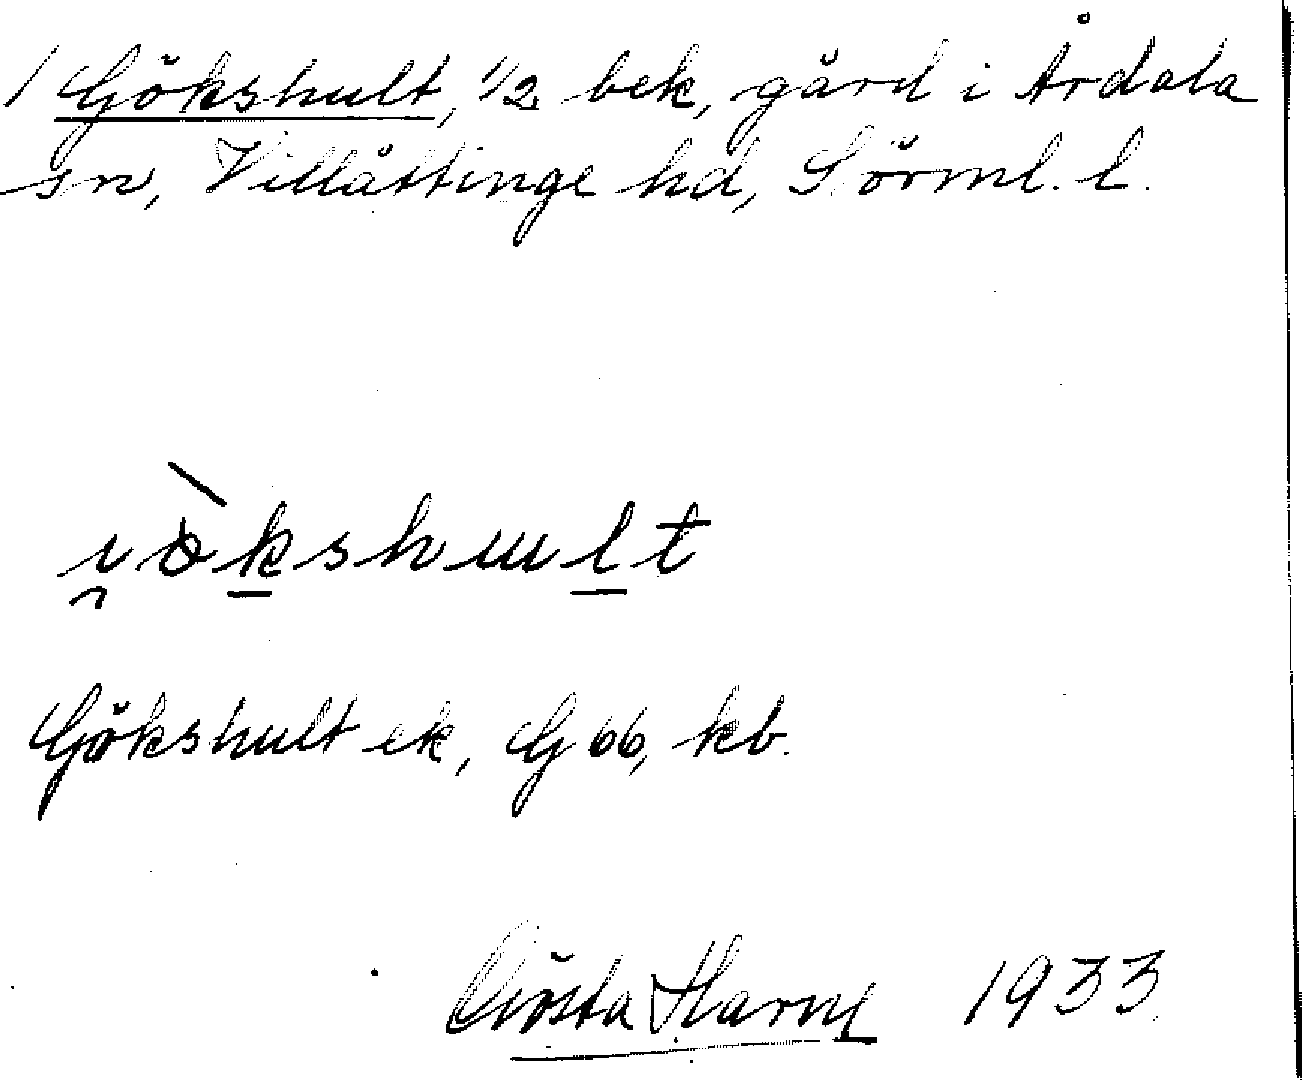 / Gökshult, 1/2 bek, gård i Årdala
sn, Villåttinge hd, Sörml. l.
Gökshult ek, G 66, kb.
Gösta Harm 1933